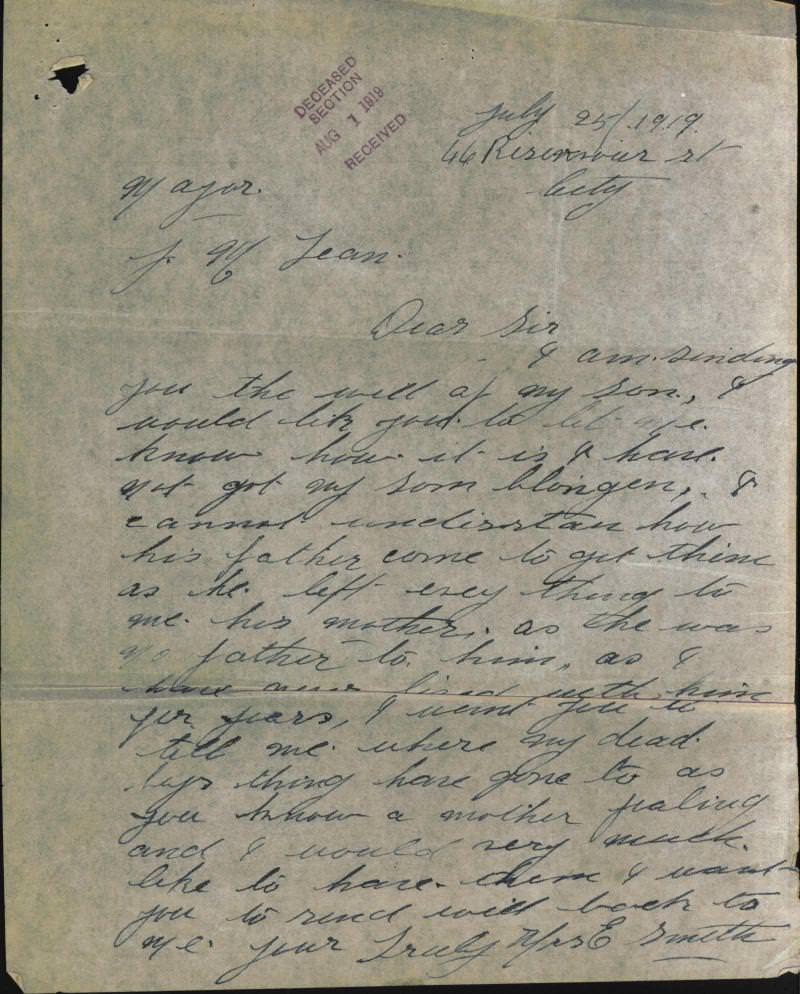 DECEASED
SECTION
AUG 1 1919
RECEIVED
July 25/ .1919.
46 Reservoier st
City
Major.
J. M Lean.
Dear Sir
I am sending
you the will of my son, I
would lik you to let me.
know how it is I have.
not got my som blongen, I
cannot undisstan how
his father come to get thime
as he left evey thing to
me his mother. as the was
no father to him, as I
have lived with him
for years, I want you to
tell me where my dead.
boys thing have gone to as
you know a mother fealing
and I would very much.
like to have them I want
you to send will back to
me. your Truly Mrs E Smith